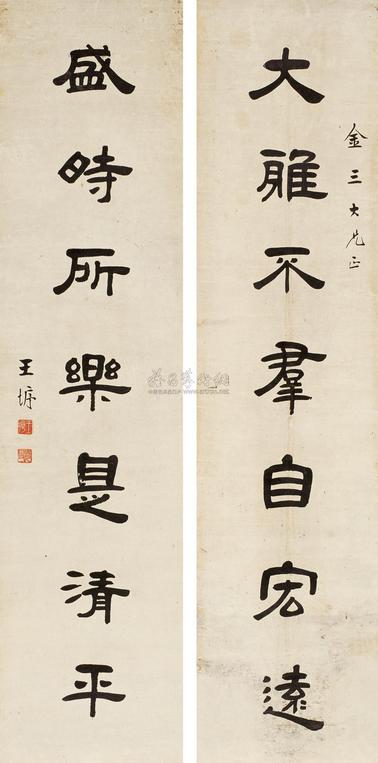 金三大兄正
大雅不羣自宏遠
盛時所樂是清平
王墉